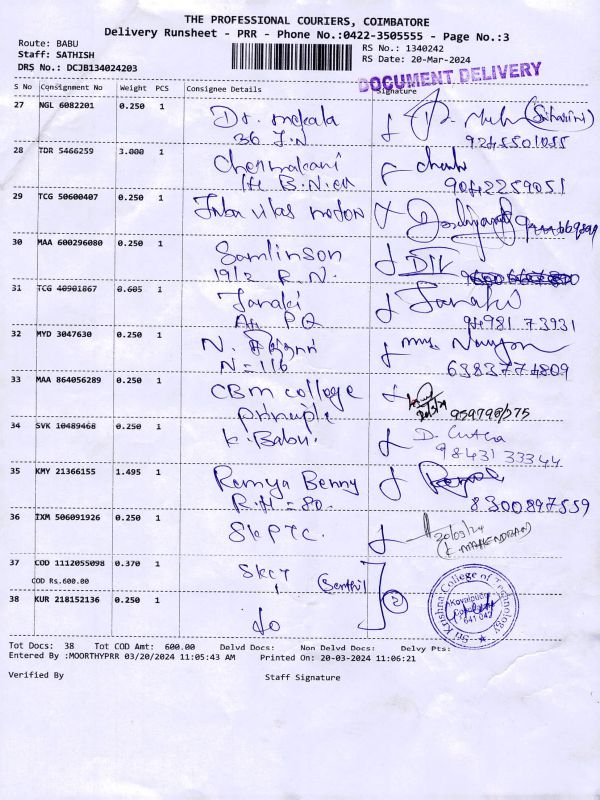 THE PROFESSIONAL COURIERS, COIMBATORE
Delivery Runsheet - PRR - Phone No.:0422-3505555 - Page No.:3
Route: BABU
Staff: SATHISH
DRS No.: DCJB134024203
RS No.: 1340242
RS Date: 20-Mar-2024
DOCUMENT DELIVERY
S No Consignment No Weight PCS Consignee Details Signature
27 NGL 6082201 0.250 1 Dr. mekala
36 J.N 9245501055
28 TDR 5466259 3.000 1 Chermakani
B.N. 9042259051
29 TCG 50600407 0.250 1
30 MAA 600296080 0.250 1 Samlinson
19/2 R.N.
31 TCG 40901867 0.605 1 Janaki Janaki
P Q 94981 73931
32 MYD 3047630 0.250 1 N.
N=116 6383774809
33 MAA 864056289 0.250 1 CBM college
Prinuiple 20/3/24
34 SVK 10489468 0.250 1 K. Babu. D.
98431 33344
35 KMY 21366155 1.495 1 Remya Benny
R.H = 80. 8300897559
36 IXM 506091926 0.250 1 SKPTC. 20/03/24
(K. MAHENDRAN)
37 COD 1112055098 0.370 1 SKCT
COD Rs.600.00 (Senthil) 2
38 KUR 218152136 0.250 1 do
Sri Krishna College of Technology
Kovaipudur
641 042
Tot Docs: 38 Tot COD Amt: 600.00 Delvd Docs: Non Delvd Docs: Delvy Pts:
Entered By :MOORTHYPRR 03/20/2024 11:05:43 AM Printed On: 20-03-2024 11:06:21
Verified By Staff Signature